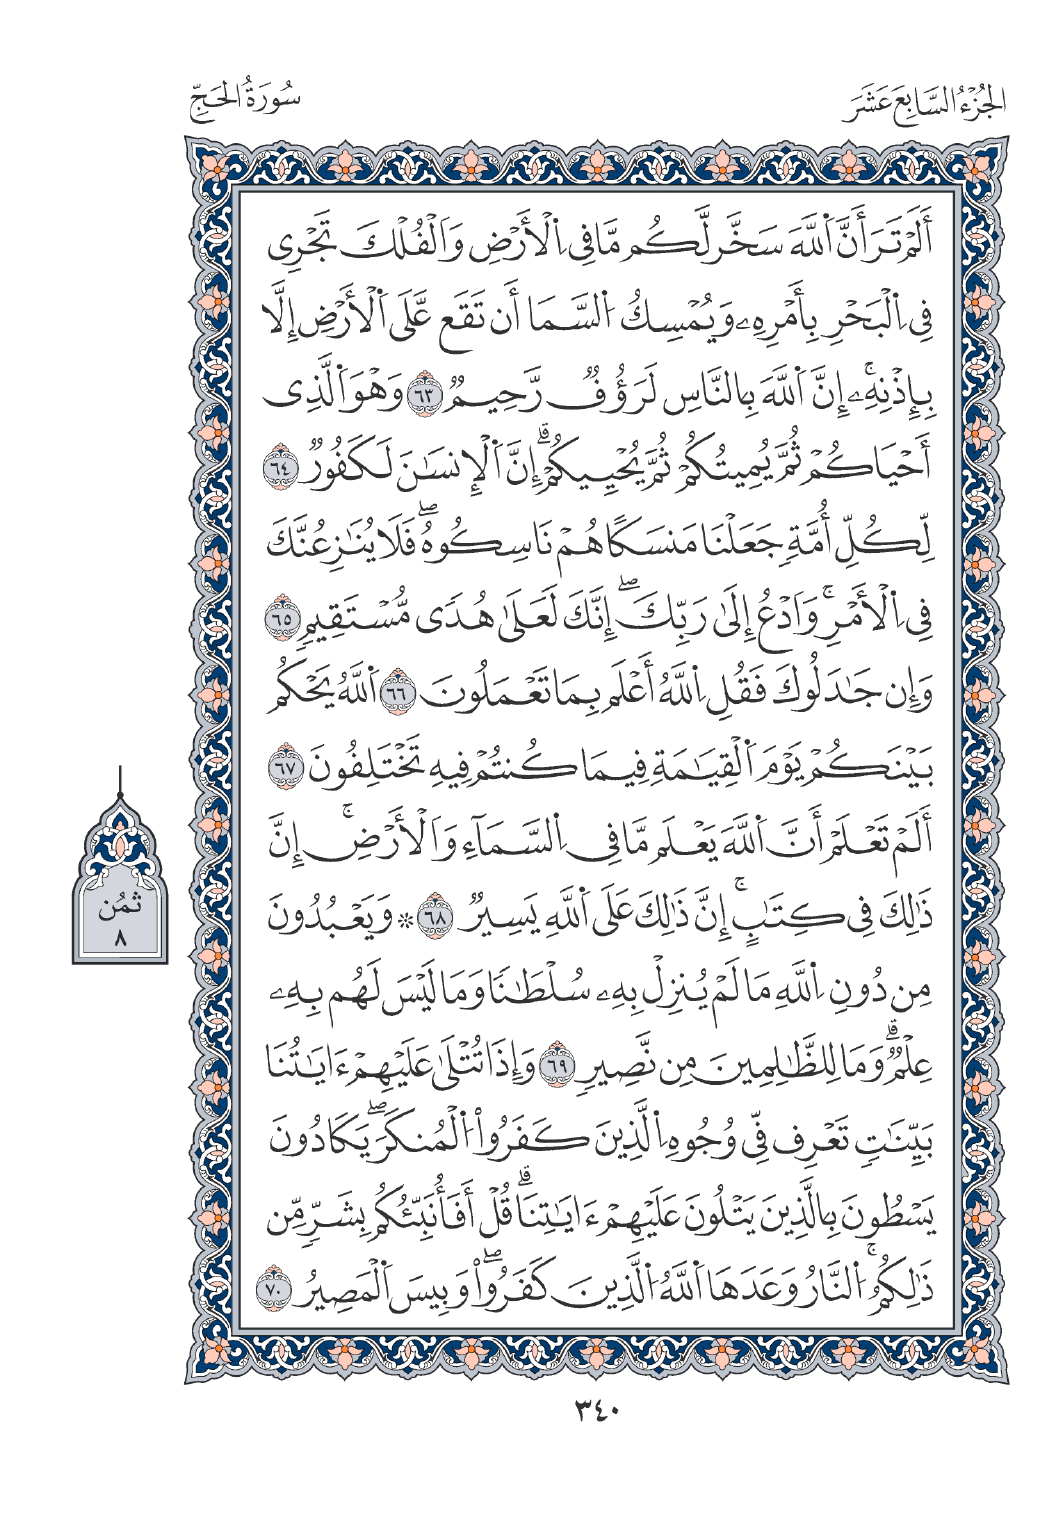 الجُزْءُ السَّابِعَ عَشَرَ
سُورَةُ الحَجِّ
أَلَمْ تَرَ أَنَّ اَ۬للَّهَ سَخَّرَ لَّكُم مَّا فِي اِ۬لْأَرْضِ وَالْفُلْكَ تَجْرِي
فِي اِ۬لْبَحْرِ بِأَمْرِهِۦ وَيُمْسِكُ اُ۬لسَّمَا أَن تَقَع عَّلَى اَ۬لْأَرْضِ إِلَّا
بِإِذْنِهِۦٓۚ إِنَّ اَ۬للَّهَ بِالنَّاسِ لَرَؤُفٌ رَّحِيمٌ ٦٣ وَهْوَ اَ۬لَّذِي
أَحْيَاكُمْ ثُمَّ يُمِيتُكُمْ ثُمَّ يُحْيِيكُمْۗ إِنَّ اَ۬لْإِنسَٰنَ لَكَفُورٌ ٦٤
لِّكُلِّ أُمَّةٖ جَعَلْنَا مَنسَكًا هُمْ نَاسِكُوهُۖ فَلَا يُنَٰزِعُنَّكَ
فِي اِ۬لْأَمْرِۚ وَادْعُ إِلَىٰ رَبِّكَۖ إِنَّكَ لَعَلَىٰ هُدٗى مُّسْتَقِيمٖ ٦٥
وَإِن جَٰدَلُوكَ فَقُلِ اِ۬للَّهُ أَعْلَم بِمَا تَعْمَلُونَ ٦٦ اَ۬للَّهُ يَحْكُم
بَيْنَكُمْ يَوْمَ اَ۬لْقِيَٰمَةِ فِيمَا كُنتُمْ فِيهِ تَخْتَلِفُونَ ٦٧
أَلَمْ تَعْلَمْ أَنَّ اَ۬للَّهَ يَعْلَم مَّا فِي اِ۬لسَّمَآءِ وَالْأَرْضِۚ إِنَّ
ذَٰلِكَ فِي كِتَٰبٍۚ إِنَّ ذَٰلِكَ عَلَى اَ۬للَّهِ يَسِيرٌ ٦٨ ۞ وَيَعْبُدُونَ
مِن دُونِ اِ۬للَّهِ مَا لَمْ يُنزِلْ بِهِۦ سُلْطَٰنٗا وَمَا لَيْسَ لَهُم بِهِۦ
عِلْمٌۗ وَمَا لِلظَّٰلِمِينَ مِن نَّصِيرٖ ٦٩ وَإِذَا تُتْلَىٰ عَلَيْهِمْ ءَايَٰتُنَا
بَيِّنَٰتٖ تَعْرِف فِّي وُجُوهِ اِ۬لَّذِينَ كَفَرُواْ اُ۬لْمُنكَرَۖ يَكَادُونَ
يَسْطُونَ بِالَّذِينَ يَتْلُونَ عَلَيْهِمْ ءَايَٰتِنَاۗ قُلْ أَفَأُنَبِّئُكُم بِشَرّٖ مِّن
ذَٰلِكُمُۚ اُ۬لنَّارُ وَعَدَهَا اَ۬للَّهُ اُ۬لَّذِينَ كَفَرُواْۖ وَبِيسَ اَ۬لْمَصِيرُ ٧٠
ثمُن
٨
٣٤٠